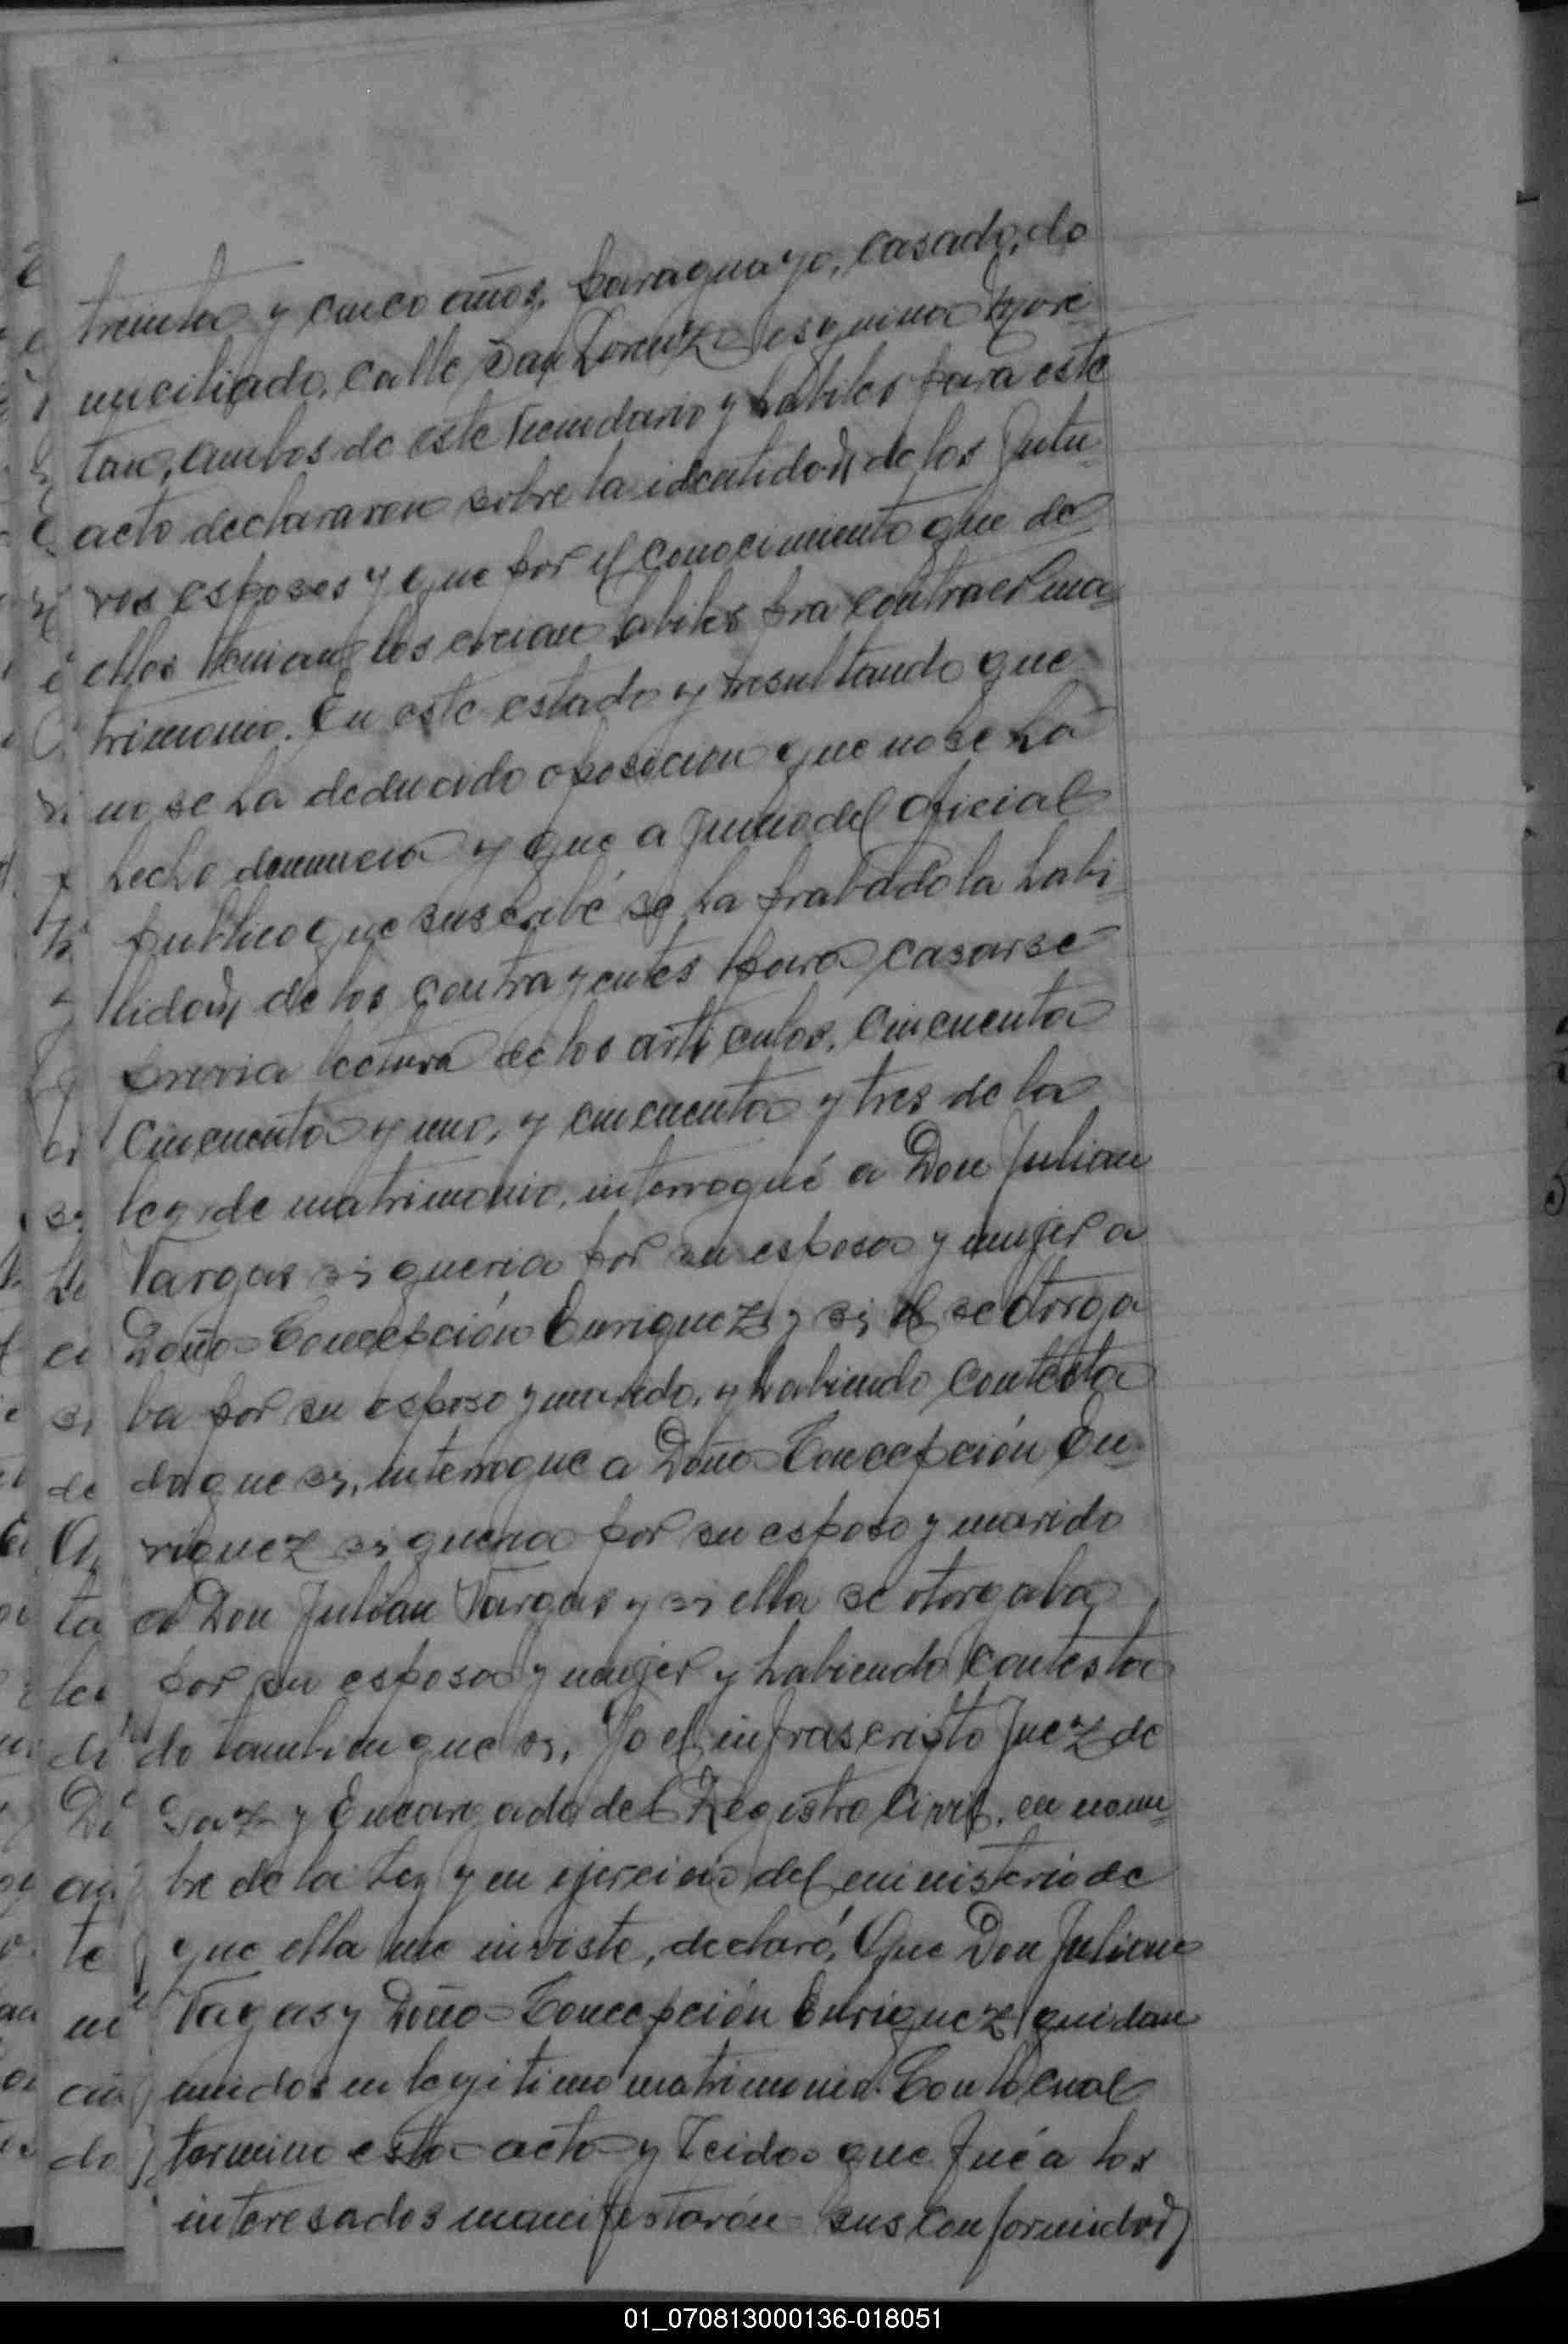 treinta y cinco años, paraguayo, casado, do
miciliado, calle San Lorenzo esquina
tan, ambos de este vecindario y habiles para este
acto declararon sobre la identidad de los futu
ros esposos y que por el conocimiento que de
ellos tenian, los creian habiles pra contraer ma
trimonio. En este estado y resultando que
no se ha deducido oposicion que no se ha
hecho denuncia y que a juicio del oficial
publico que suscribé se ha probado la habi
lidad, de los contrayentes para casarse
previa lectura de los articulos, cincuenta
cincuenta y uno, y cincuenta y tres de la
ley de matrimonio, interrogué a Don Julian
Vargas si queria por su esposa y mujer a
Doña Concepción Enriquez y si el se otorga
ba por su esposo y marido, y habiendo contesta
do que si, interrogue a Doña Concepción En
riquez si queria por su esposo y marido
a Don Julian Vargas y si ella se otorgaba
por su esposa y mujer y habiendo contesta
do tambien que si, Yo el infrascristo Juez de
Paz y Encargado del Registro Civil, en nom
bre de la Ley y en ejercicio del ministerio de
que ella me inviste, declaró, Que Don Julian
Vagas y Doña Concepción Enriquez quidan
unidos en legitimo matrimonio. Con lo cual
termino esta acta y leida que fué a los
interesados manifestarón sus conformidad
01_070813000136-018051